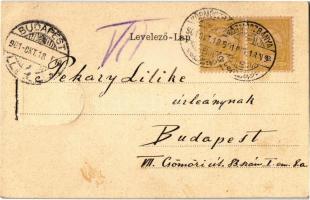 VII
BUDAPEST
901 OKT. 18
Levelező-Lap
Pekáry Lilike
úrleánynak
Budapest
VII. Csömöri út. 83. szám I. em. 8.a